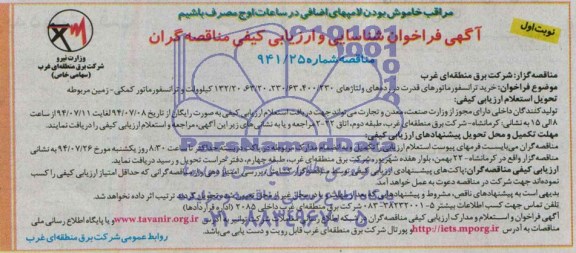 مراقب خاموش بودن لامپهای اضافی در ساعات اوج مصرف باشیم
نوبت اول
آگهی فراخوان شناسایی و ارزیابی کیفی مناقصه گران
مناقصه شماره ۹۴۱/۲۵
وزارت نیرو
شرکت برق منطقه‌ای غرب
(سهامی خاص)
مناقصه گزار: شرکت برق منطقه‌ای غرب
موضوع فراخوان: خرید ترانسفورماتورهای قدرت در رده‌های ولتاژهای ۲۳۰، ۴۰۰، ۶۳، ۲۳۰، ۶۳/۲۰، ۱۳۲/۲۰ کیلوولت و ترانسفورماتور کمکی - زمین مربوطه
تحویل استعلام ارزیابی کیفی:
تولیدکنندگان داخلی دارای مجوز از وزارت صنعت، معدن و تجارت می‌توانند جهت دریافت استعلام ارزیابی کیفی به صورت رایگان از تاریخ ۹۴/۰۷/۰۸ لغایت ۹۴/۰۷/۱۱ از ساعت
۸ الی ۱۵ به نشانی: کرمانشاه - شرکت برق منطقه‌ای غرب، طبقه دوم، اتاق ۲۰۲ مراجعه و یا به نشانی‌های زیر این آگهی، مراجعه و استعلام ارزیابی کیفی را دریافت نمایند.
مهلت تکمیل و محل تحویل پیشنهادهای ارزیابی کیفی:
مناقصه گران می‌بایست فرمهای پیوست استعلام ارزیابی ساعت ۸:۳۰ روز یکشنبه مورخ ۹۴/۰۷/۲۶ به نشانی
مناقصه گزار واقع در کرمانشاه - ۲۲ بهمن - بلوار هفده شهریور - شرکت برق منطقه‌ای غرب، طبقه چهارم، دفتر حراست تحویل و رسید دریافت نمایند.
ارزیابی کیفی مناقصه گران: پاکت‌های پیشنهادی ارزیابی کیفی توسط مناقصه گرانی که حداقل امتیاز ارزیابی کیفی را کسب
نموده‌اند جهت شرکت در مناقصه دعوت به عمل خواهد آمد.
بدیهی است به پیشنهادهای ناقص، مشروط و ترتیب اثر داده نخواهد شد.
تلفن تماس جهت کسب اطلاعات بیشتر ۵-۳۸۲۳۲۰۰۱-۰۸۳ شرکت برق منطقه‌ای غرب داخلی ۲۰۸۵ (اداره قراردادها)
آگهی فراخوان و استعلام و مدارک ارزیابی کیفی مناقصه‌گران www.tavanir.org.ir و یا پایگاه اطلاع رسانی ملی
مناقصات به آدرس http://iets.mporg.ir و پورتال شرکت برق منطقه‌ای غرب قابل رویت و دست یابی می‌باشد.
روابط عمومی شرکت برق منطقه‌ای غرب
۰۲۱-۸۸۳۴۹۶۷۰-۵